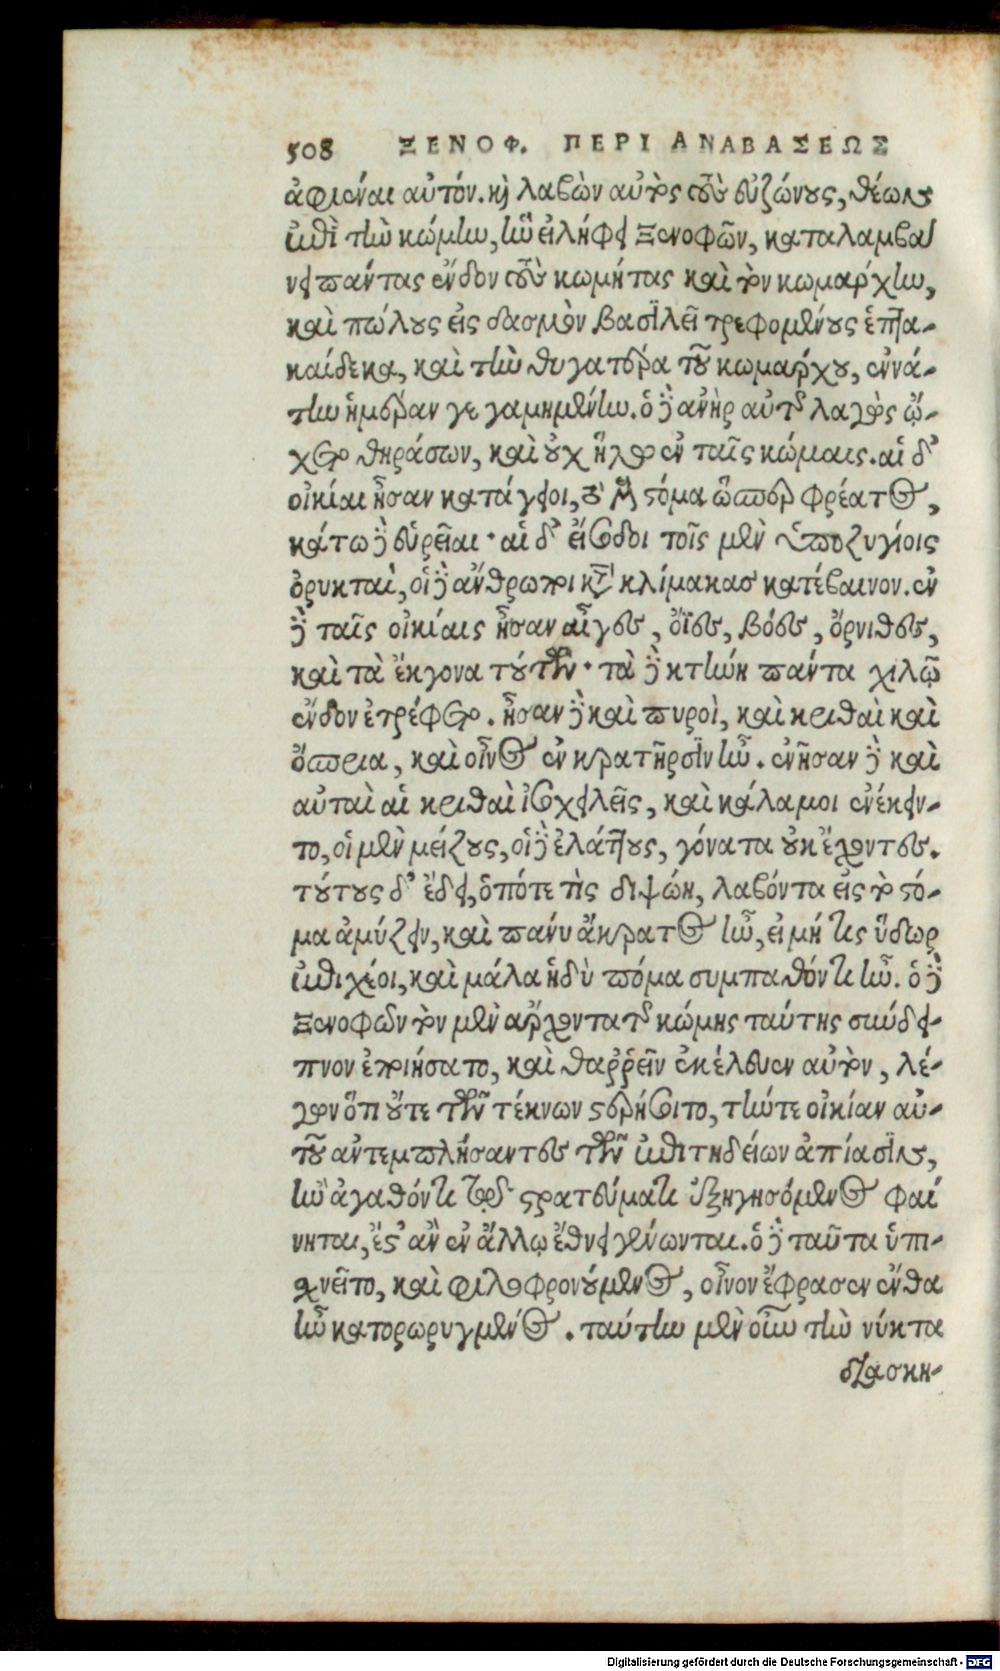 508 ΞΕΝΟΦ. ΠΕΡΙ ΑΝΑΒΑΣΕΩΣ
ἀφιέναι αὐτόν. καὶ λαβὼν αὐτὸς τοὺς εὐζώνους, θέων
ἐπὶ τὴν κώμην, ἣν εἰλήφει Ξενοφῶν, καταλαμβά
νει πάντας ἔνδον τοὺς κωμήτας καὶ τὸν κωμάρχην,
καὶ πώλους εἰς δασμὸν βασιλεῖ τρεφομένους ἑπτα-
καίδεκα, καὶ τὴν θυγατέρα τοῦ κωμάρχου, ἐννά-
την ἡμέραν γεγαμημένην. ὁ δὲ ἀνὴρ αὐτῆς λαγὼς ᾤ-
χετο θηράσων, καὶ οὐχ ἥλω ἐν ταῖς κώμαις. αἱ δ'
οἰκίαι ἦσαν κατάγειοι, τὸ μὲν στόμα ὥσπερ φρέατος,
κάτω δὲ εὐρεῖαι· αἱ δ' εἴσοδοι τοῖς μὲν ὑποζυγίοις
ὀρυκταὶ, οἱ δὲ ἄνθρωποι κατὰ κλίμακας κατέβαινον. ἐν
δὲ ταῖς οἰκίαις ἦσαν αἶγες, ὄϊες, βόες, ὄρνιθες,
καὶ τὰ ἔκγονα τούτων· τὰ δὲ κτήνη πάντα χιλῷ
ἔνδον ἐτρέφετο. ἦσαν δὲ καὶ πυροὶ, καὶ κριθαὶ καὶ
ὄσπρια, καὶ οἶνος ἐν κρατῆρσιν ἦν. ἐνῆσαν δὲ καὶ
αὐταὶ αἱ κριθαὶ ἰσοχειλεῖς, καὶ κάλαμοι ἐνέκειν-
το, οἱ μὲν μείζους, οἱ δὲ ἐλάττους, γόνατα οὐκ ἔχοντες.
τούτους δ' ἔδει, ὁπότε τις διψώη, λαβόντα εἰς τὸ στό-
μα ἀμύζειν, καὶ πάνυ ἄκρατος ἦν, εἰ μή τις ὕδωρ
ἐπιχέοι, καὶ μάλα ἡδὺ πόμα συμπαθόντι ἦν. ὁ δὲ
Ξενοφῶν τὸν μὲν ἄρχοντα τῆς κώμης ταύτης σύνδει-
πνον ἐποιήσατο, καὶ θαῤῥεῖν ἐκέλευεν αὐτὸν, λέ-
γων ὅτι οὔτε τῶν τέκνων στερήσοιτο, τήν τε οἰκίαν αὐ-
τοῦ ἀντεμπλήσαντες τῶν ἐπιτηδείων ἀπίασιν,
ἢν ἀγαθόν τι τῷ στρατεύματι ἐξηγησόμενος φαί
νηται, ἔς τ' ἂν ἐν ἄλλῳ ἔθνει γένωνται. ὁ δὲ ταῦτα ὑπι-
σχνεῖτο, καὶ φιλοφρονούμενος, οἶνον ἔφρασεν ἔνθα
ἦν κατορωρυγμένος. ταύτην μὲν οὖν τὴν νύκτα
διασκη-
Digitalisierung gefördert durch die Deutsche Forschungsgemeinschaft - DFG